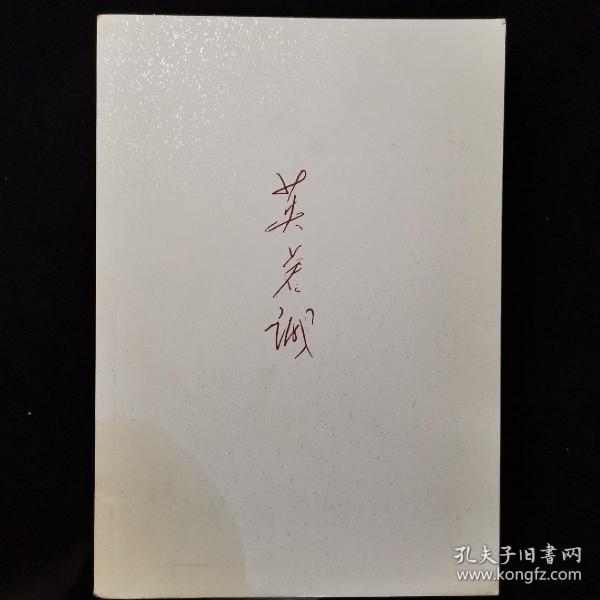 英若诚
孔夫子旧書网
www.kongfz.com